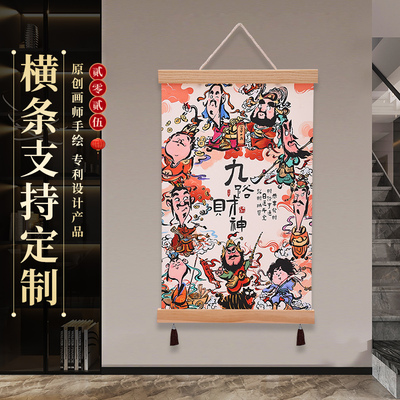 贰零贰伍
原创画师手绘 专利设计产品
横条支持定制
九路财神